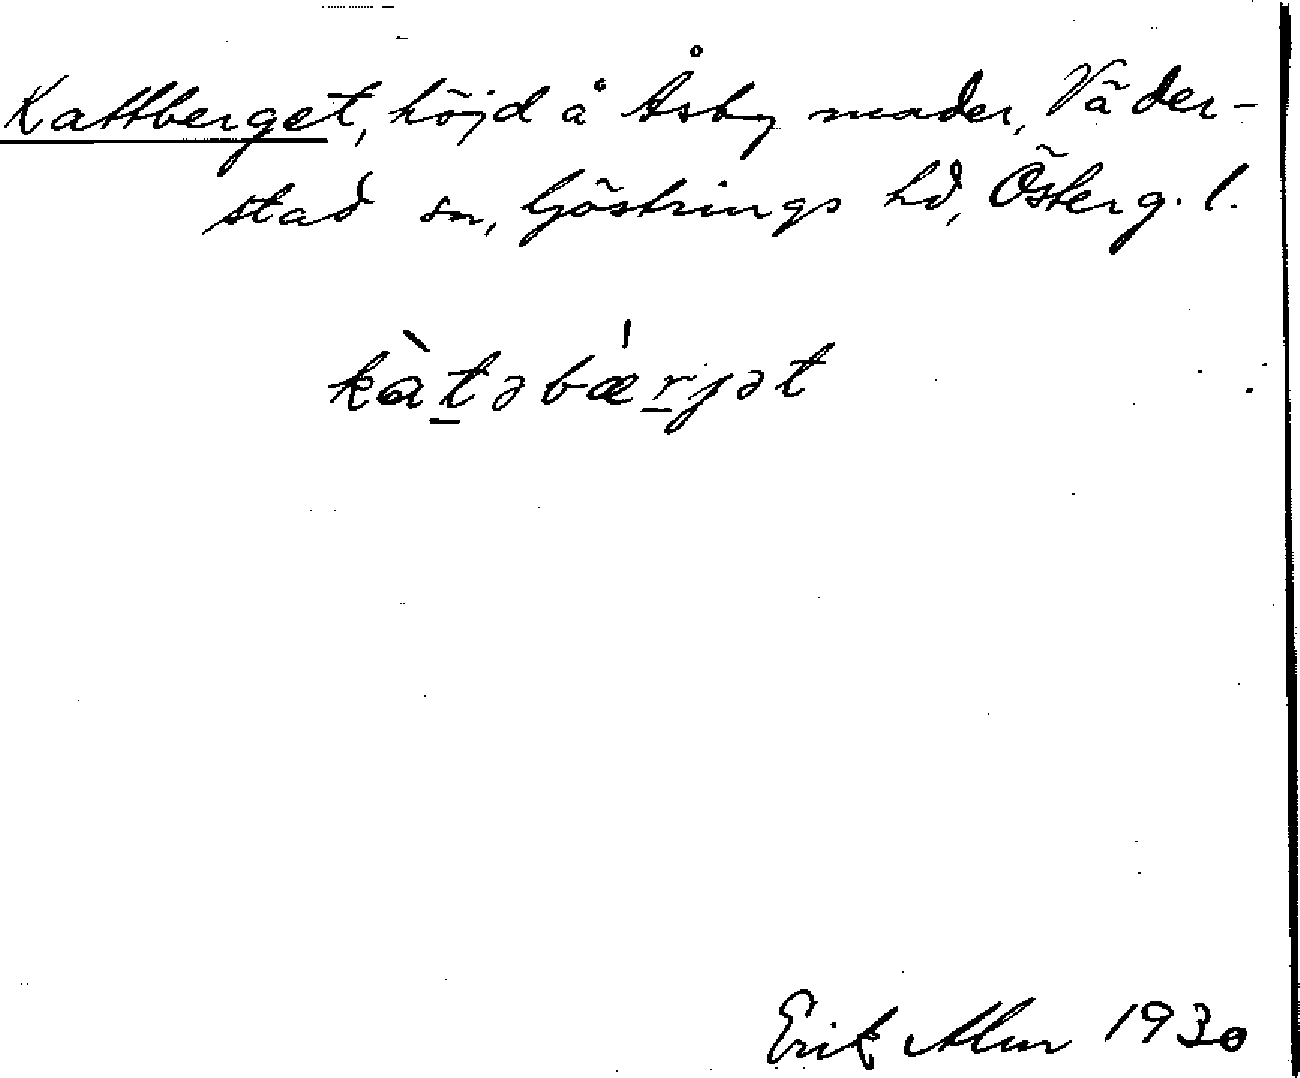 Kattberget, höjd å Åsby mader, Väder-
stad sn, Göstrings hd, Österg. l.
kàt̠əbæ̍r̠jət
Erik Alm 1930